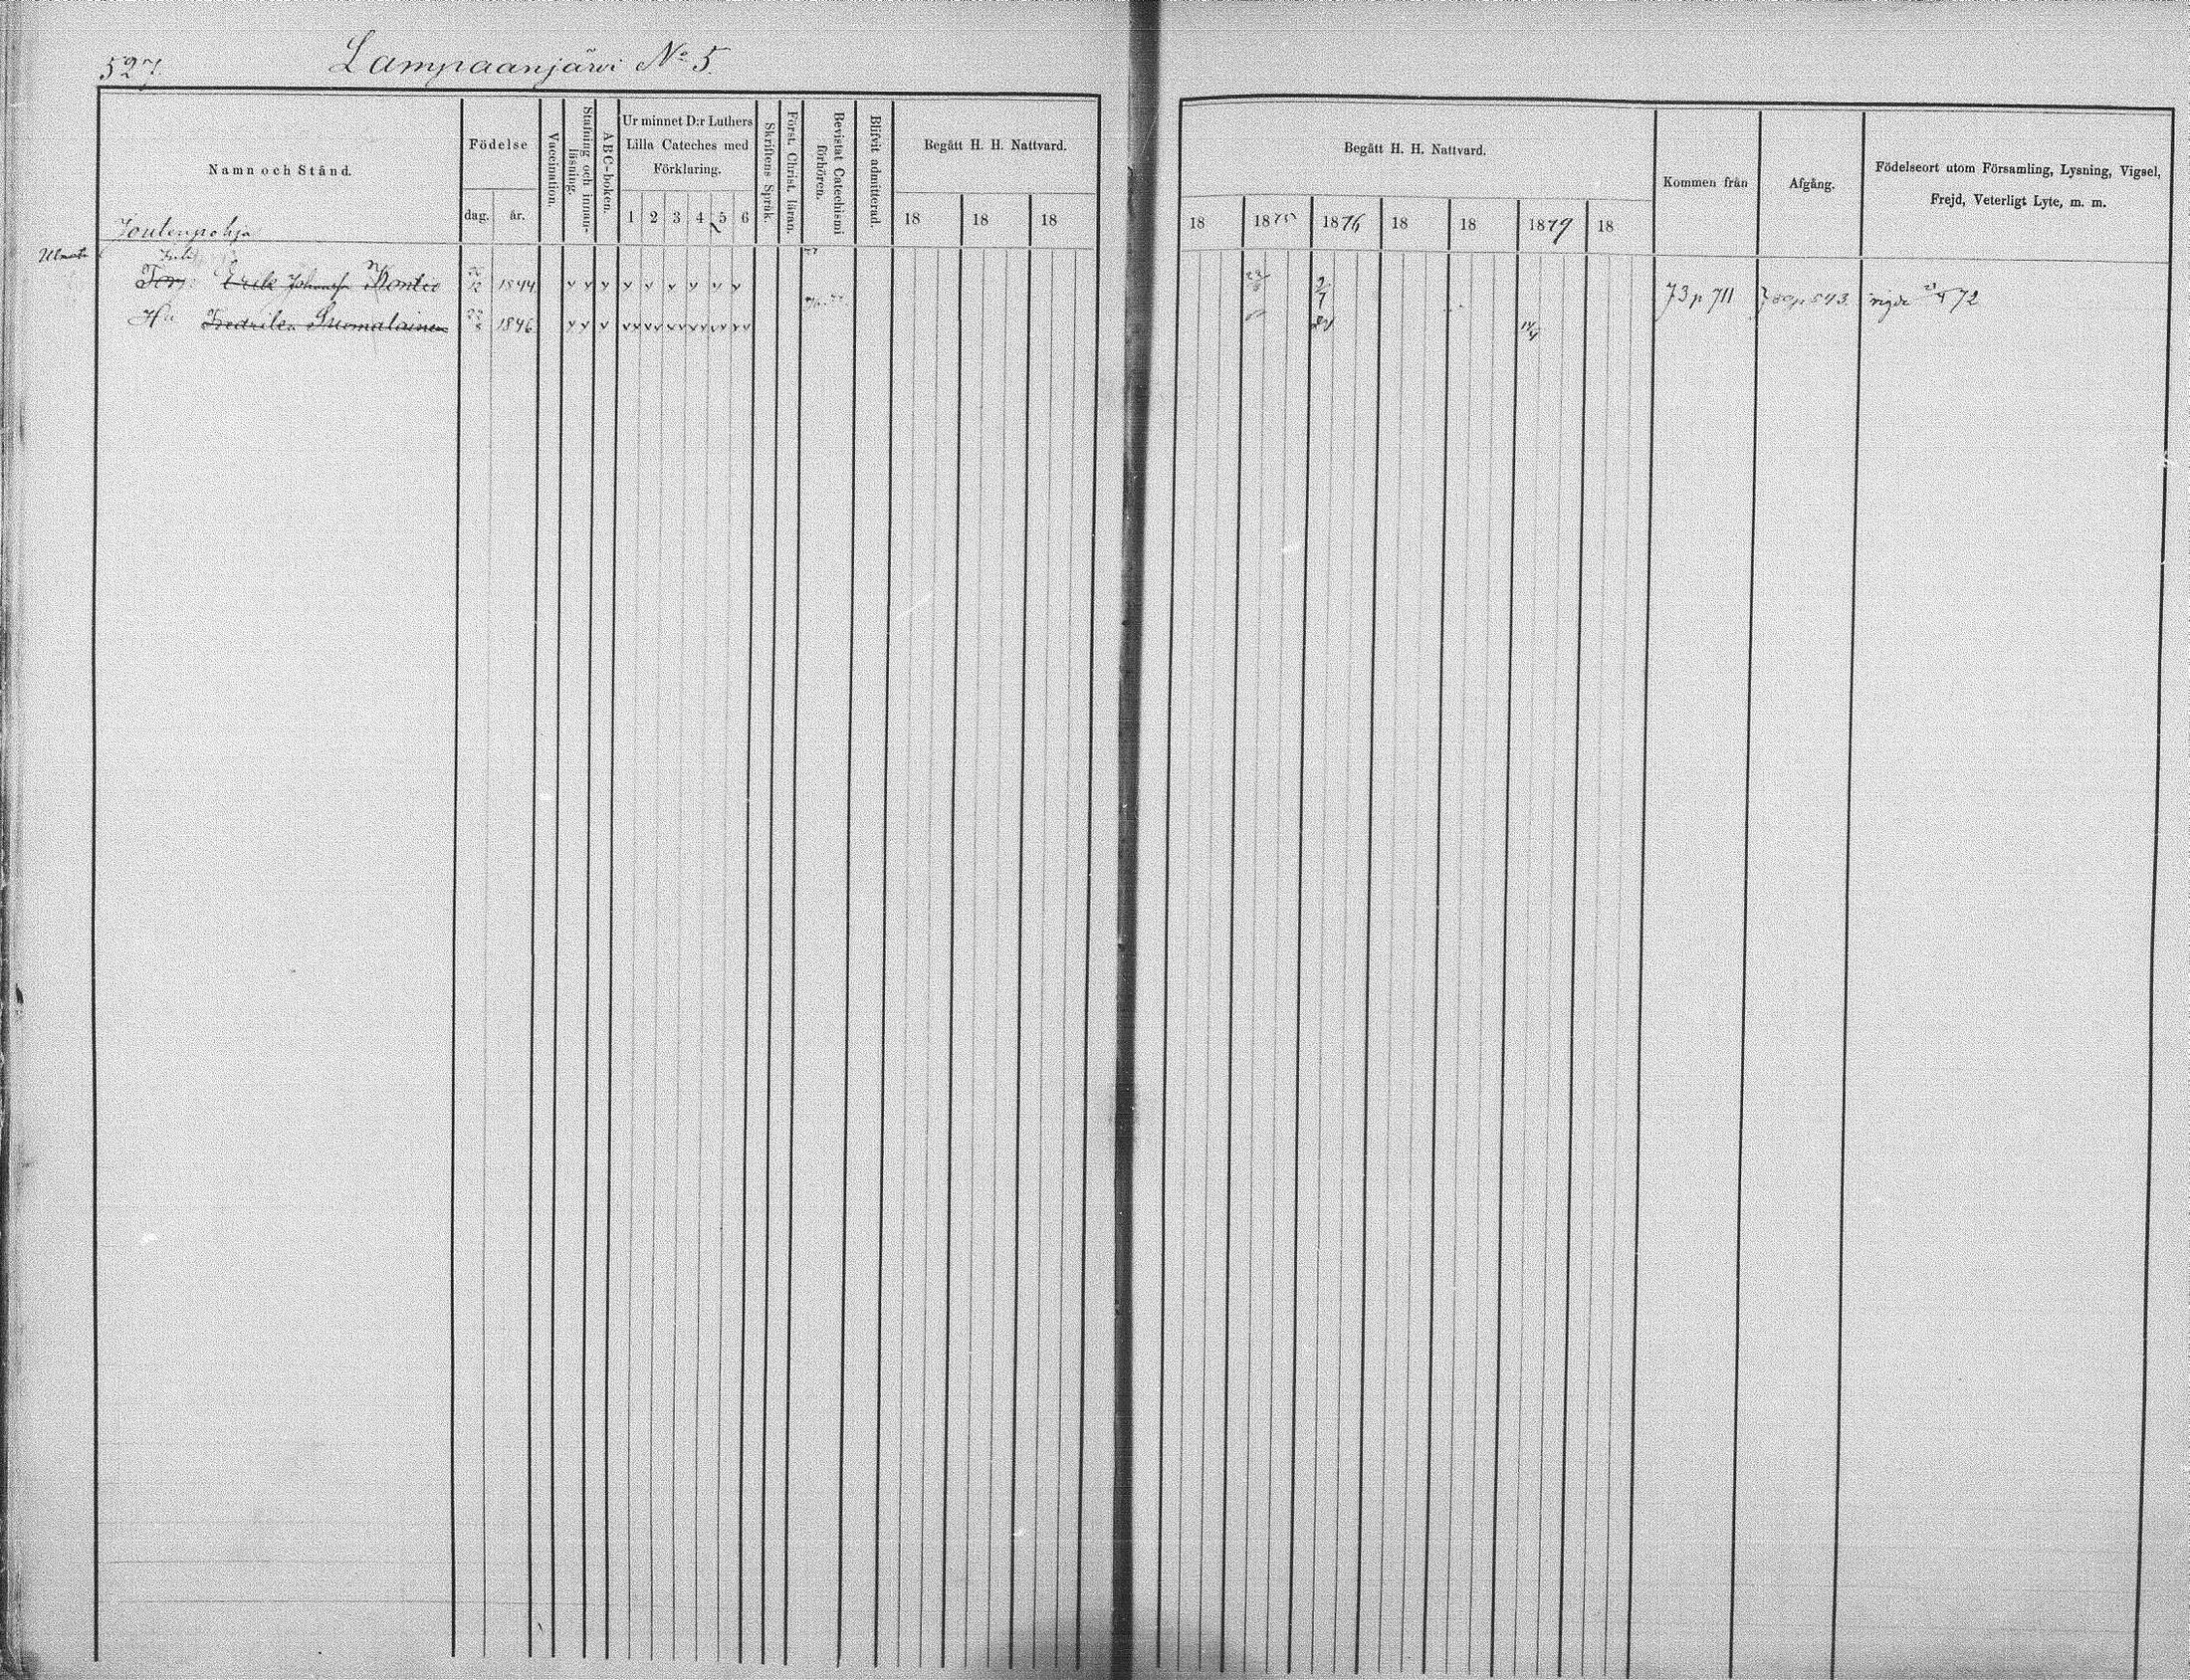 527.
Lampaanjärvi No 5.
Namn och Stånd.
Födelse
dag. år.
Vaccination.
Stafning och innan-läsning.
ABC-boken.
Ur minnet D:r Luthers
Lilla Cateches med
Förklaring.
1 2 3 4 5 6
Skriftens Språk.
Först. Christ. läran.
Bevistat Catechismi förhören.
Blifvit admitterad.
Begått H. H. Nattvard.
18 18 18
Begått H. H. Nattvard.
18 1875 1876 18 18 1879 18
Kommen från
Afgång.
Födelseort utom Församling, Lysning, Vigsel,
Frejd, Veterligt Lyte, m. m.
Joutenpohja
Erik Johansson Kontio 1844 v v v v v v v v v 73 p 711 80 p 543 72
Hu Fredrika Suomalainen 1846 v v v v v v v v v v v v v v v